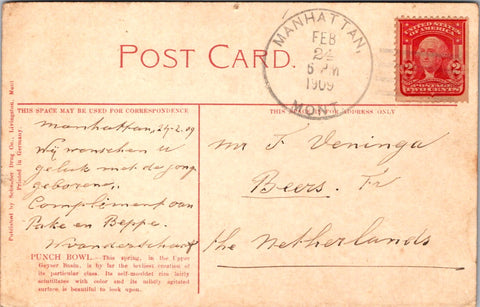 POST CARD.
MANHATTAN,
FEB
24
6 PM
1909
MONT.
UNITED STATES
OF AMERICA
2 2
POSTAGE
TWO CENTS
THIS SPACE MAY BE USED FOR CORRESPONDENCE
THIS SPACE IS FOR ADDRESS ONLY
Manhattan, 24-2-09
Wij wenschen u
geluk met de jong
geborene,
Compliment van
Pake en Beppe.
Mr F Veninga
Beers. Fr
the Netherlands
PUNCH BOWL.—This spring, in the Upper
Geyser Basin, is by far the
its particular class. Its self-moulded rim lastly
scintillates with color and its mildly agitated
surface is beautiful to look upon.
Published by Schrader Drug Co., Livingston, Mont
Printed in Germany.